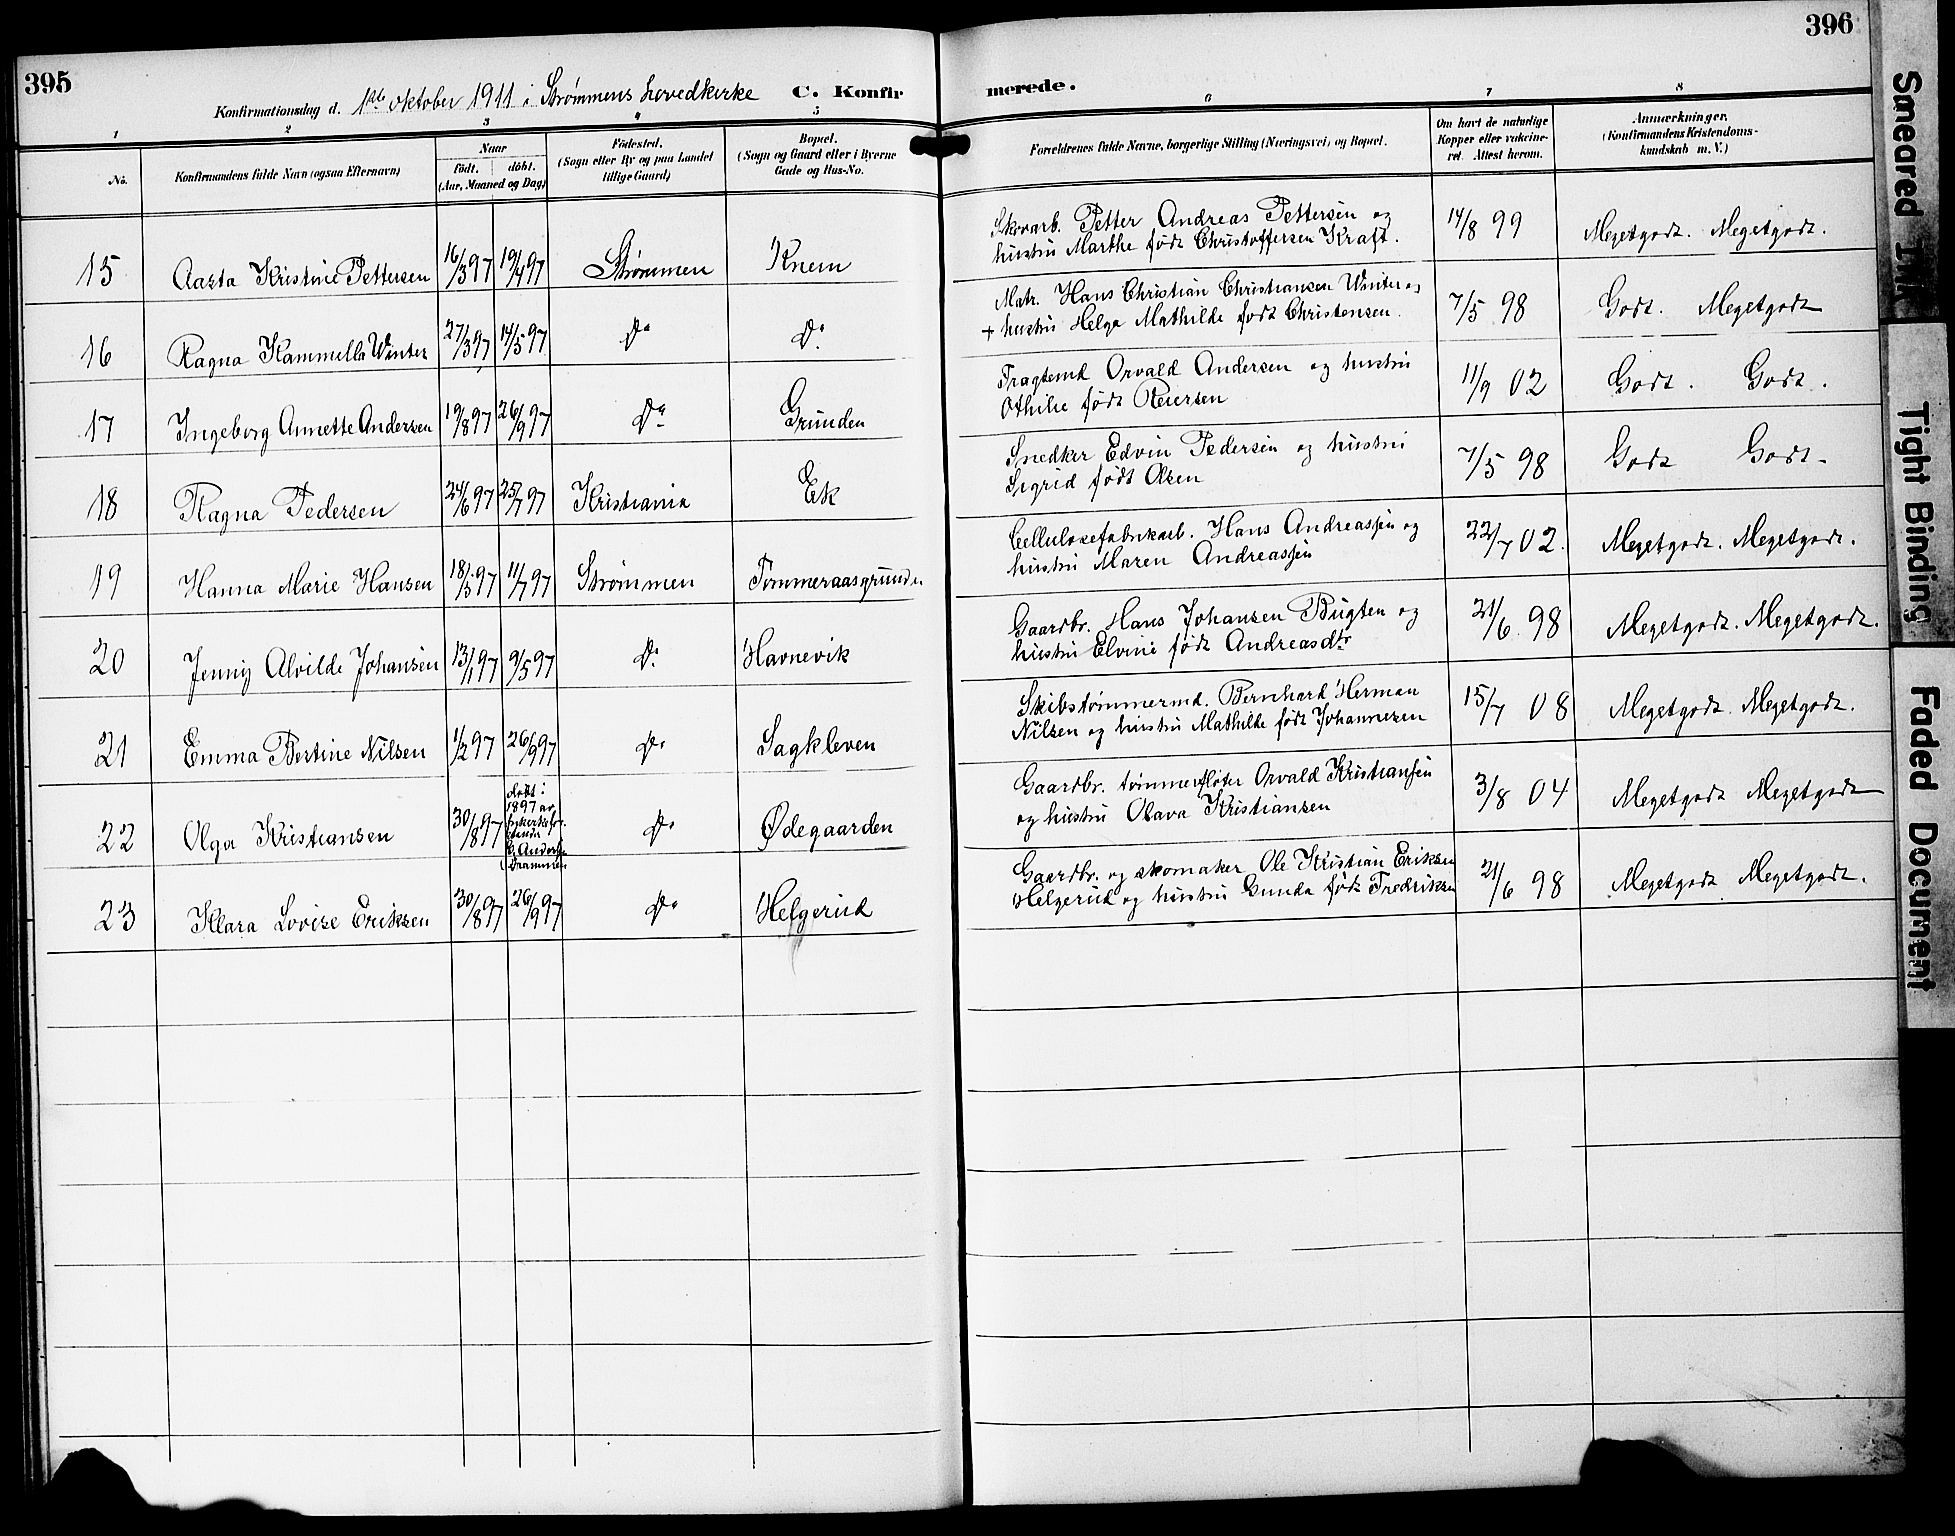 395
Konfirmationsdag d. 1ste oktober 1911 i Strømmens hovedkirke C. Konfir
1 2 3 4 5
No.
Konfirmandens fulde Navn (ogsaa Efternavn)
Naar
født. døbt.
(Aar, Maaned og Dag)
Fødested.
(Sogn eller By og paa Landet
tillige Gaard)
Bopæl.
(Sogn og Gaard eller i Byerne
Gade og Hus-No.
15 Aasta Kristine Pettersen 16/3 97 19/4 97 Strømmen Knem
16 Ragna Kammilla Winter 27/3 97 14/5 97 Do Do
17 Ingeborg Annette Andersen 19/8 97 26/9 97 Do Grunden
18 Ragna Pedersen 24/6 97 25/7 97 Kristiania Ek
19 Hanna Marie Hansen 18/5 97 11/7 97 Strømmen Tømmeraasgrunden
20 Jenny Alvilde Johansen 13/1 97 9/5 97 Do Havnevik
21 Emma Bertine Nilsen 1/2 97 26/9 97 Do Sagkleven
22 Olga Kristiansen 30/8 97 døbt i
1897 av
Drammen
Do Ødegaarden
23 Klara Lovise Eriksen 30/8 97 26/9 97 Do Helgerud
396
merede.
6 7 8
Forældrenes fulde Navne, borgerlige Stilling (Næringsvei) og Bopæl.
Om havt de naturlige
Kopper eller vakcine-
ret. Attest herom.
Anmærkninger.
(Konfirmandens Kristendoms-
kundskab m. V.)
Skovarb. Petter Andreas Pettersen og
hustru Marthe født Christoffersen Kraft. 14/8 99 Megetgodt. Megetgodt.
Matr. Hans Christian Christiansen Winter og
+ hustru Helga Mathilde født Christensen. 7/5 98 Godt. Megetgodt
Fragtemd Orvald Andersen og hustru
Othilie født Reiersen 11/9 02 Godt. Godt.
Snedker Edvin Pedersen og hustru
Sigrid født Olsen 7/5 98 Godt Godt.
Cellulosefabrikarb. Hans Andreassen og
hustru Maren Andreassen 22/7 02. Megetgodt. Megetgodt.
Gaardbr. Hans Johansen Bugten og
hustru Elvine født Andreasdtr. 21/6 98 Megetgodt. Megetgodt.
Skibstømmermd. Bernhard Herman
Nilsen og hustru Mathilde født Johannesen 15/7 08 Megetgodt. Megetgodt.
Gaardbr. tømmerfløter Orvald Kristiansen
og hustru Olava Kristiansen 3/8 04 Megetgodt Megetgodt
Gaardbr. og skomaker Ole Kristian Eriksen
Helgerud og hustru Gunda født Fredriksen 21/6 98 Megetgodt Megetgodt.
Smeared Ink
Tight Binding
Faded Document